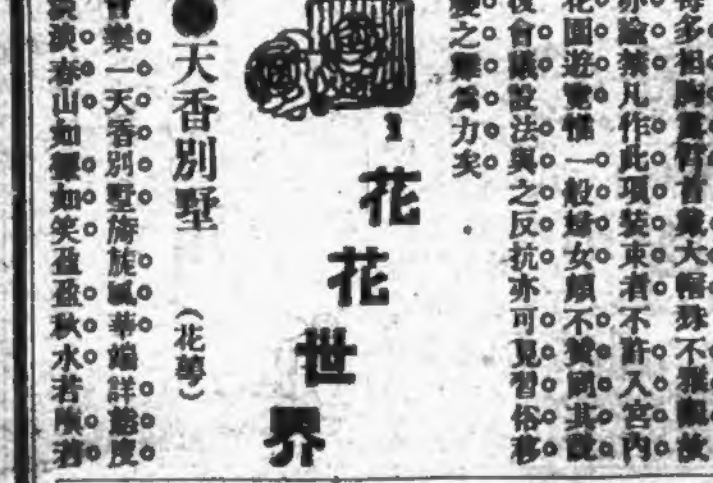 每多袒胸露臂首戴大帽殊不雅觀故
亦諭禁凡作此項裝束者不許入宮內
花園遊覽惟一般婦女頗不贊同其說
復會議設法與之反抗亦可見習俗移
之難為力矣
花花世界
●天香別墅
（花萼）
會樂一天香別墅旖旎風華端詳態度
淡春山如顰如笑盈盈秋水若